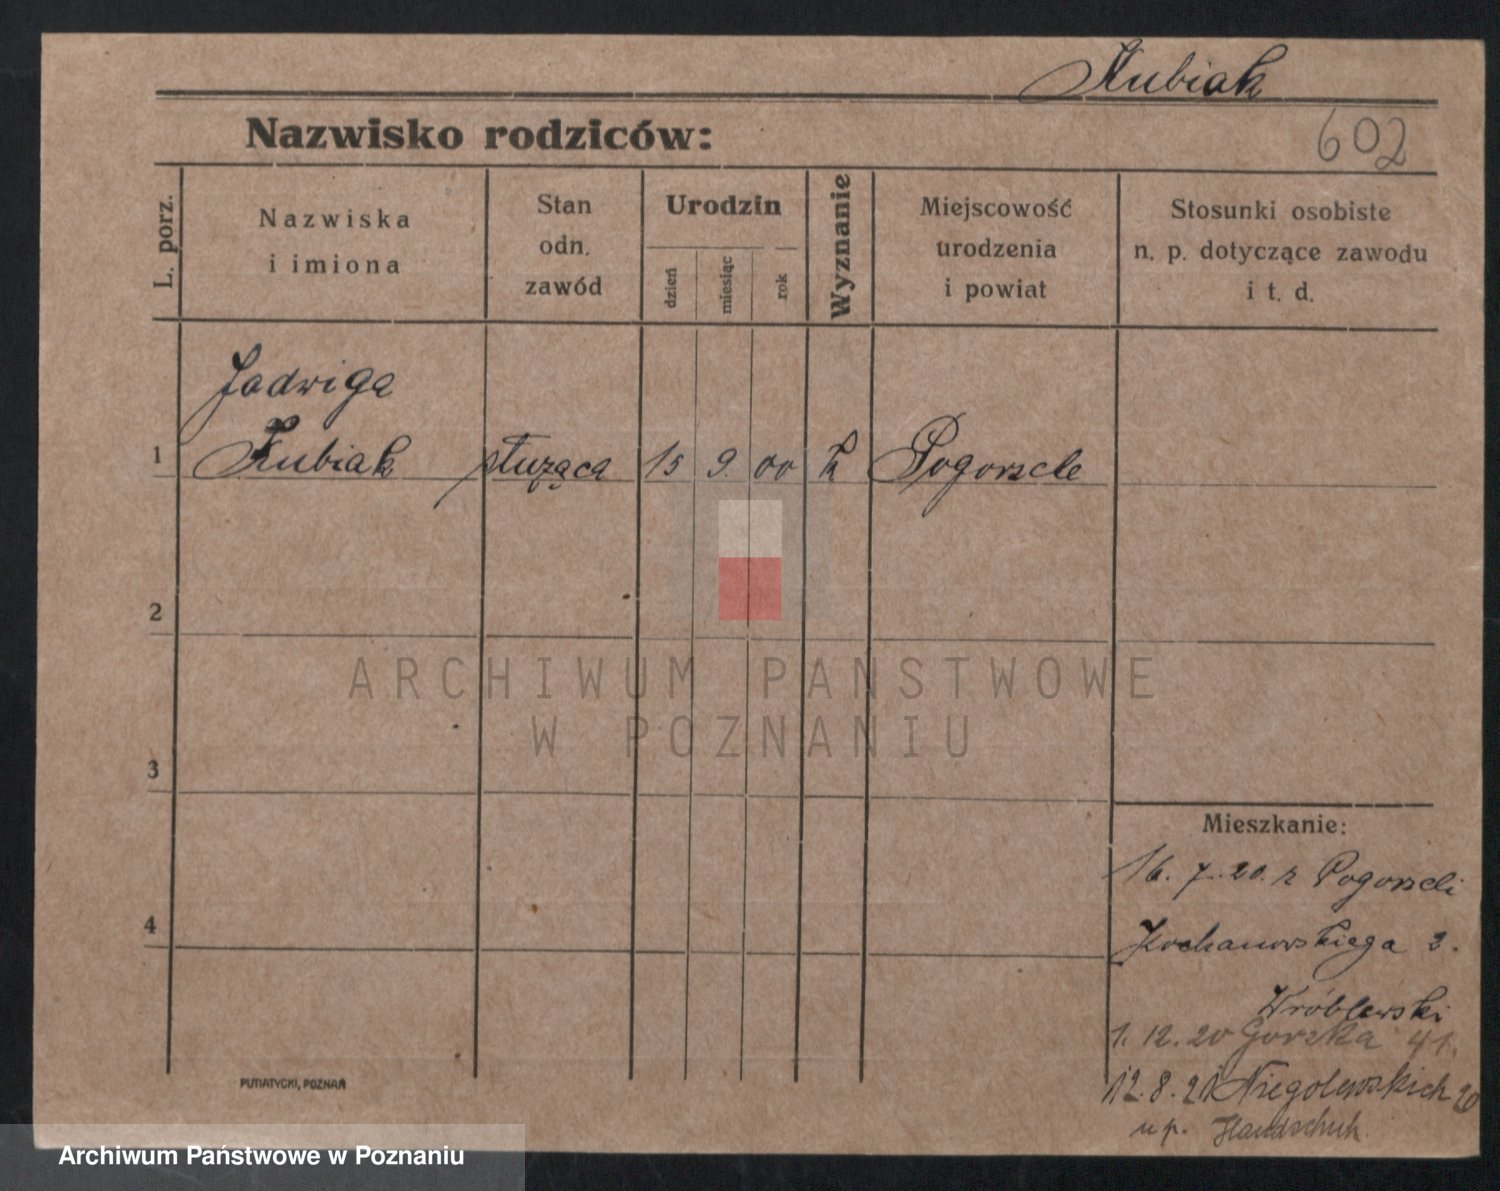 Kubiak
Nazwisko rodziców:
602
L. porz.
Nazwiska
i imiona
Stan
odn.
zawód
Urodzin
dzień
miesiąc
rok
Wyznanie
Miejscowość
urodzenia
i powiat
Stosunki osobiste
n. p. dotyczące zawodu
i t. d.
Jadwiga
1 Kubiak służąca 15 9. 00 k Pogorzele
2
3
4
Mieszkanie:
16. 7. 20. z Pogorzeli
Kochanowskiego 3.
Wróblewski
1. 12. 20 Gorzka 41.
12. 8. 21 Niegolewskich 20
u p. Handschuh.
PUTIATYCKI, POZNAŃ
ARCHIWUM PAŃSTWOWE
W POZNANIU
Archiwum Państwowe w Poznaniu